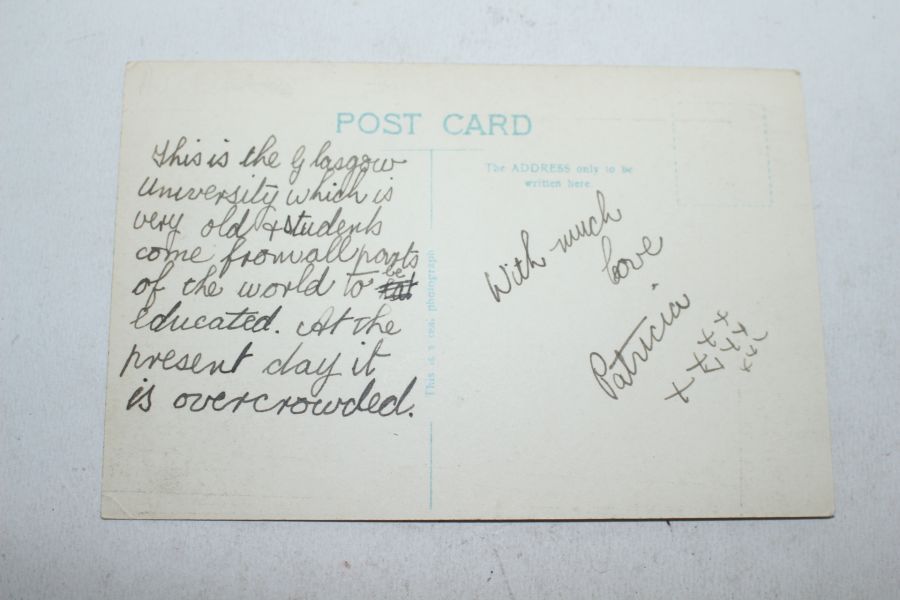 POST CARD
This is the Glasgow
University which is
very old & students
come from all parts
of the world to be
educated. At the
present day it
is overcrowded.
This is a real photograph
The ADDRESS only to be
written here.
With much
love
Patricia
x x x x